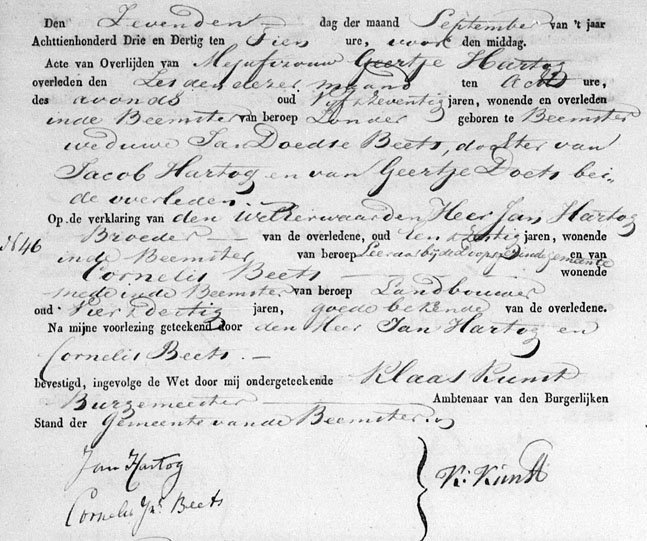 Den Zevenden dag der maand September van 't jaar
Achttienhonderd Drie en Dertig ten Tien ure, voor den middag.
Acte van Overlijden van Mejufvrouw Geertje Hartog
overleden den Zesden dezer maand ten Acht ure,
des avonds oud Vijf & Zeventig jaren, wonende en overleden
in de Beemster van beroep Zonder geboren te Beemster
weduwe Jan Doedse Beets, dogter van
Jacob Hartog en van Geertje Doets bei-
de overleden.
Op de verklaring van den Weleerwaarden Heer Jan Hartog
N 46 Broeder van de overledene, oud en Zestig jaren, wonende
in de Beemster van beroep Leeraar bij de Doopsgezinde gemeente en van
Cornelis Beets wonende
mede in de Beemster van beroep Landbouwer
oud Vier & dertig jaren, goede bekende van de overledene.
Na mijne voorlezing geteekend door den Heer Jan Hartog en
Cornelis Beets.
bevestigd, ingevolge de Wet door mij ondergeteekende Klaas Kunst
Burgemeester Ambtenaar van den Burgerlijken
Stand der Gemeente van de Beemster
Jan Hartog
K: Kunst
Cornelis Jns. Beets